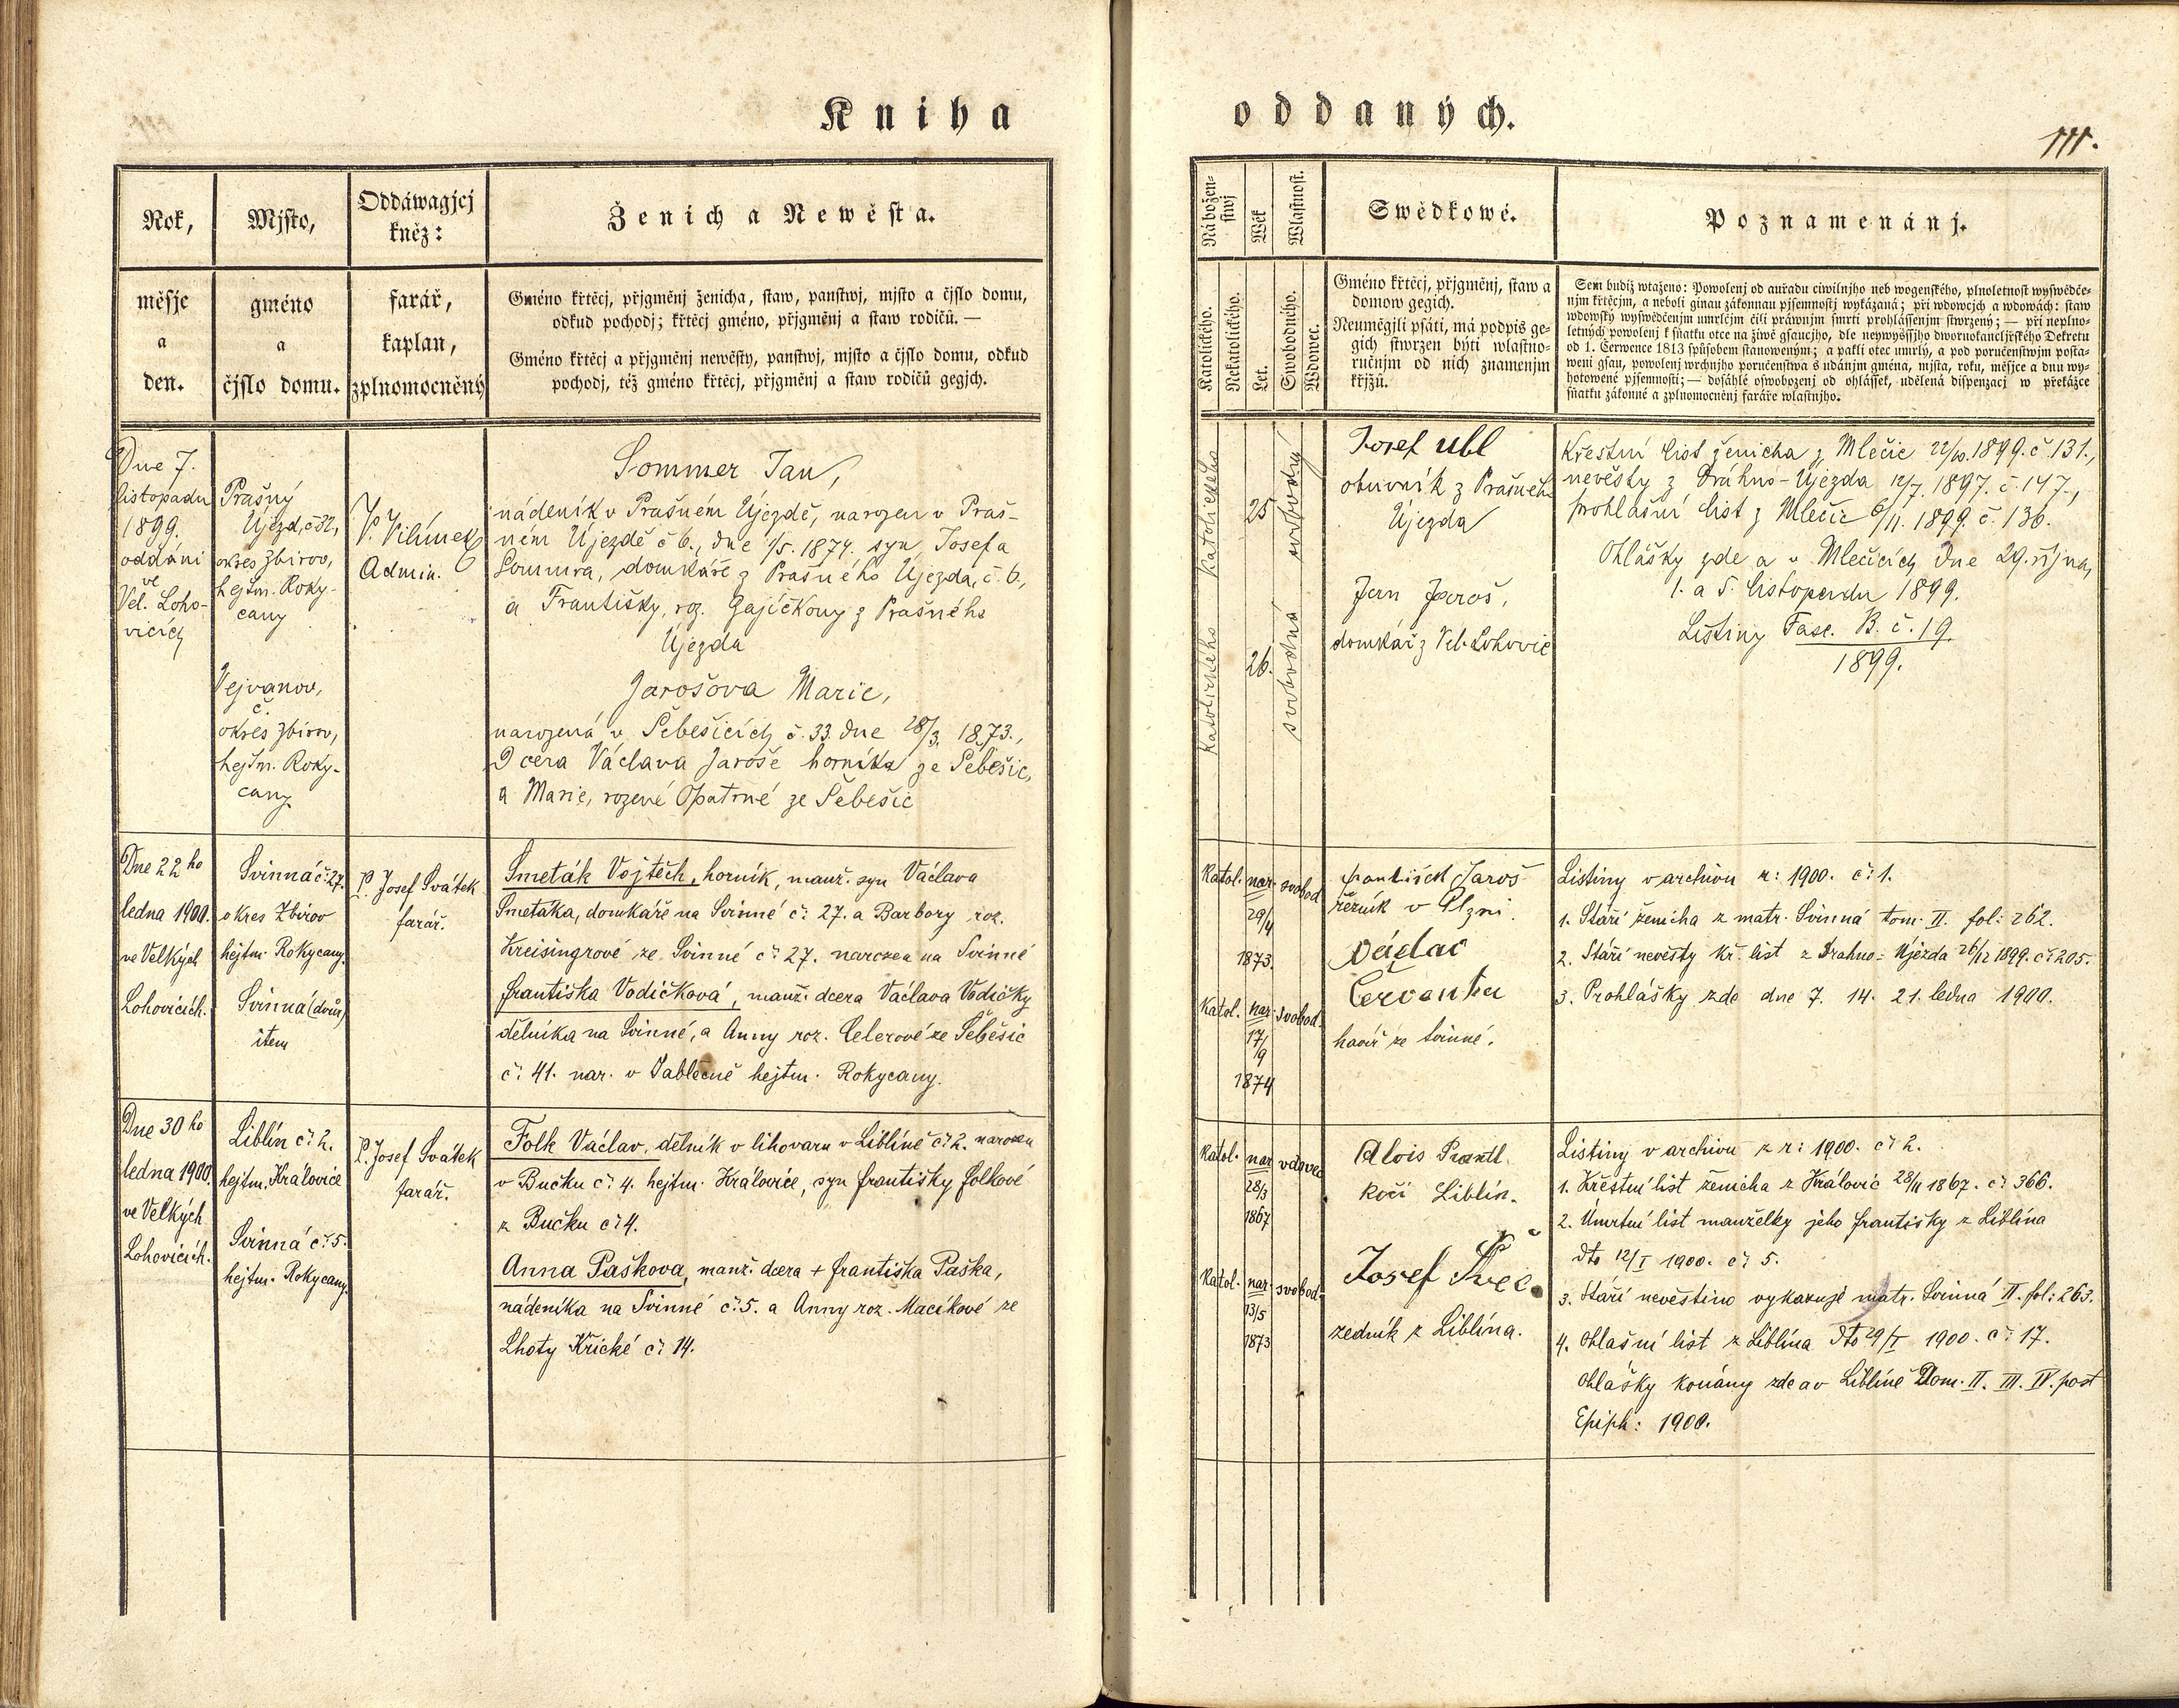 Kniha
oddaných.
111.
Rok,
měsje
a
den.
Mjsto,
gméno
a
čjslo domu.
Oddáwagjcj
kněz:
farář,
kaplan,
zplnomocněný
Ženich a Newěsta.
Gméno křtěcj, přjgměnj ženicha, staw, panstwj, mjsto a čjslo domu,
odkud pochodj; křtěcj gméno, přjgměnj a staw rodičů. —
Gméno křtěcj a přjgměnj newěsty, panstwj, mjsto a čjslo domu, odkud
pochodj, též gméno křtěcj, přjgměnj a staw rodičů gegjch.
Náboženstwj
Katolického.
Nekatolického.
Wěk
Let.
Wlastnost.
Swobodného.
Wdowec.
Swědkowé.
Gméno křtěcj, přjgměnj, staw a
domow gegich.
Neumějgli psáti, má podpis ge-
gich stwrzen býti wlastno-
ručnjm od nich znamenjm
křjžů.
Poznamenánj.
Sem budiž wtaženo: Powolenj od auřadu ciwilnjho neb wogenského, plnoletnost wyswědče-
njm křtěcjm, a neboli ginau zákonnau pjsemnostj wykázaná; při wdowcjch a wdowách: staw
wdowský wyswědčenjm umrlčjm čili práwnjm smrti prohlássenjm stwrzený; — při neplno-
letných powolenj k sňatku otce na žiwě gsaucjho, dle neywyššjho dwornokancljřského Dekretu
od 1. Cerwence 1813 spůsobem stanoweným; a pakli otec umrlý, a pod poručenstwjm posta-
weni gsau, powolenj wrchnjho poručenstwa s udánjm gména, mjsta, roku, měsjce a dnu wy-
hotowené pjsemnosti; — dosáhlé oswobozenj od ohlássek, udělená dispenzacj w překážce
sňatku zákonné a zplnomocněnj faráře wlastnjho.
Dne 7.
listopadu
1899.
oddáni
ve
Vel. Loho-
vicích
Prašný
Újezd, č 32,
okres Zbirov,
hejtm. Roky-
cany
Vejvanov,
č.
okres Zbirov,
hejtm. Roky-
cany.
V. Vilímek
Admin.
Sommer Jan,
nádeník v Prašném Újezdě, narozen v Praš-
ném Újezdě č 6., dne 1/5. 1874. syn Josefa
Sommra, domkáře z Prašného Újezda, č. 6.,
a Františky, roz. Gajíčkovy z Prašného
Újezda
Jarošova Marie,
narozená v Šebešicích č. 33. dne 28/3. 1873.,
Dcera Václava Jaroše horníka ze Šebešic,
a Marie, rozené Opatrné ze Šebešic
Katolického
Katolického
25
26.
svobodný
svobodná
Josef Ubl
obuvník z Prašneh.
Újezda
Jan Jaroš,
domkář z Vel. Lohovic
Křestní list ženicha z Mlečic 22/10. 1899. č. 131.,
nevěsty z Drahno-Újezda 12/7. 1897. č. 147.,
prohlašní list z Mlečic 6/11. 1899. č. 136.
Ohlášky zde a v Mlečicích dne 29. října,
1. a 5. listopadu 1899.
Listiny Fasc. B. č. 19.
1899.
Dne 22ho
ledna 1900.
ve Velkých
Lohovicích.
Svinná č: 27.
okres Zbirov
hejtm. Rokycany.
Svinná (dvůr)
item
P. Josef Svátek
farář.
Smeták Vojtěch, horník, manž. syn Václava
Smetáka, domkáře na Svinné č: 27. a Barbory roz.
Kreisingrové ze Svinné č: 27. narozen na Svinné
Františka Vodičková, manž. dcera Václava Vodičky
dělníka na Svinné, a Anny roz. Celerové ze Šebešic
č: 41. nar. v Jablečně hejtm. Rokycany.
Katol.
nar.
29/4
1873.
svobod
Katol.
nar.
17/9
1874
svobod.
František Jaroš
řezník v Plzni.
Václav
Červenka
havíř ze Svinné.
Listiny v archivu r: 1900. č: 1.
1. Stáří ženicha z matr. Svinná tom. II. fol: 262.
2. Stáří nevěsty kř. list z Drahno-Újezda 26/12 1899. č: 205.
3. Prohlášky zde dne 7. 14. 21. ledna 1900.
Dne 30ho
ledna 1900.
ve Velkých
Lohovicích.
Liblín č: 2.
hejtm. Královice
Svinná č: 5.
hejtm. Rokycany.
P. Josef Svátek
farář.
Folk Václav, dělník v lihovaru v Liblíně č: 2. narozen
v Bučku č: 4. hejtm. Královice, syn Františky Folkové
z Bučku č: 4.
Anna Pašková, manž. dcera + Františka Paška,
nádeníka na Svinné č: 5. a Anny roz. Macíkové ze
Lhoty Křické č: 14.
Katol.
nar
28/3
1867
vdovec
Katol.
nar.
13/5
1873
svobod.
Alois Prantl
kočí Liblín.
Josef Švec
zedník z Liblína.
Listiny v archivu z r: 1900. č: 2.
1. Křestní list ženicha z Královic 28/II 1867. č: 366.
2. Úmrtní list manželky jeho Františky z Liblína
dto 12/I 1900. č: 5.
3. Stáří nevěstino vykazuje matr. Svinná II. fol: 263.
4. Ohlašní list z Liblína dto 29/I 1900. č: 17.
Ohlášky konány zde a v Liblíně Dom. II. III. IV. post
Epiph: 1900.